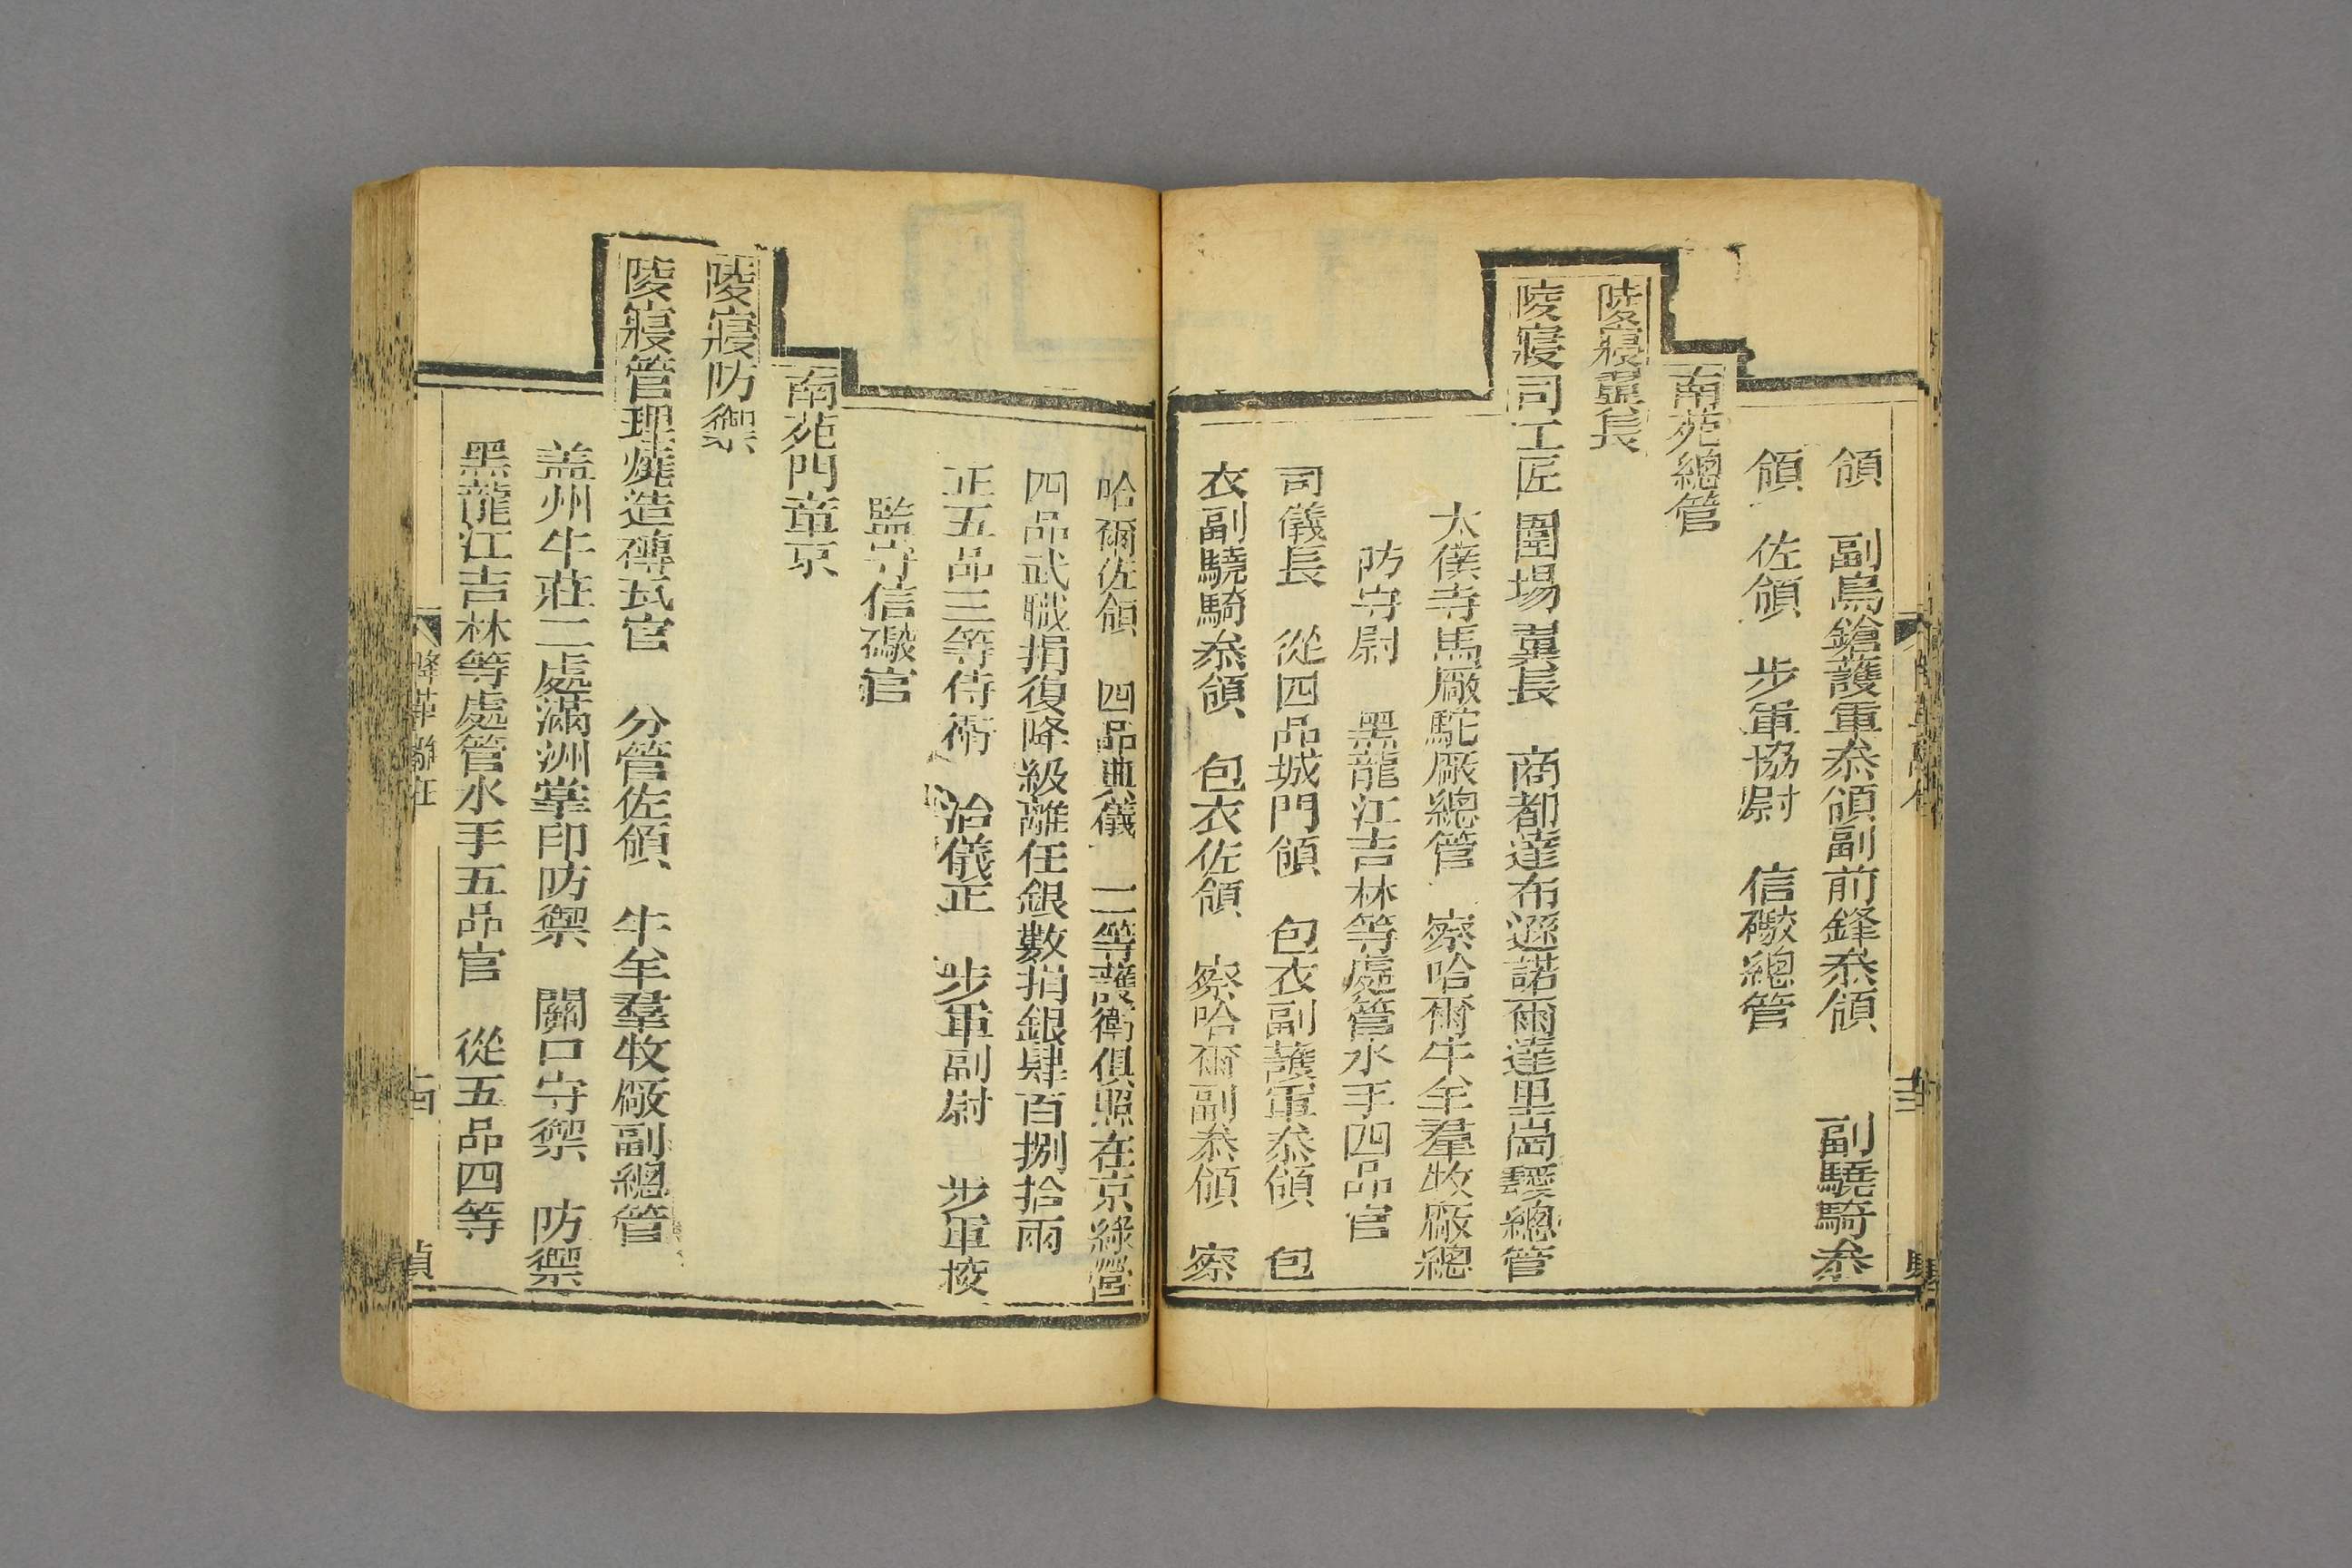 領　副鳥鎗護軍叅領副前鋒叅領　副驍騎叅
領　佐領　步軍協尉　信礮總管
南苑總管
陵寢翼長
陵寢司工匠　圍場翼長　商都達布遜諾爾達里崗愛總管
太僕寺馬廠駝廠總管　察哈爾牛羊羣牧廠總
防守尉　黑龍江吉林等處管水手四品官
司儀長　從四品城門領　包衣副護軍叅領　包
衣副驍騎叅領　包衣佐領　察哈爾副叅領　察
哈爾佐領　四品典儀　二等護衛俱照在京綠營
四品武職捐復降級離任銀數捐銀肆百捌拾兩
正五品三等侍衛　治儀正　步軍副尉　步軍校
監守信礮官
南苑門章京
陵寢防禦
陵寢管理燒造磚瓦官　分管佐領　牛羊羣牧廠副總管
盖州牛莊二處滿洲掌印防禦　關口守禦　防禦
黑龍江吉林等處管水手五品官　從五品四等
降革離任